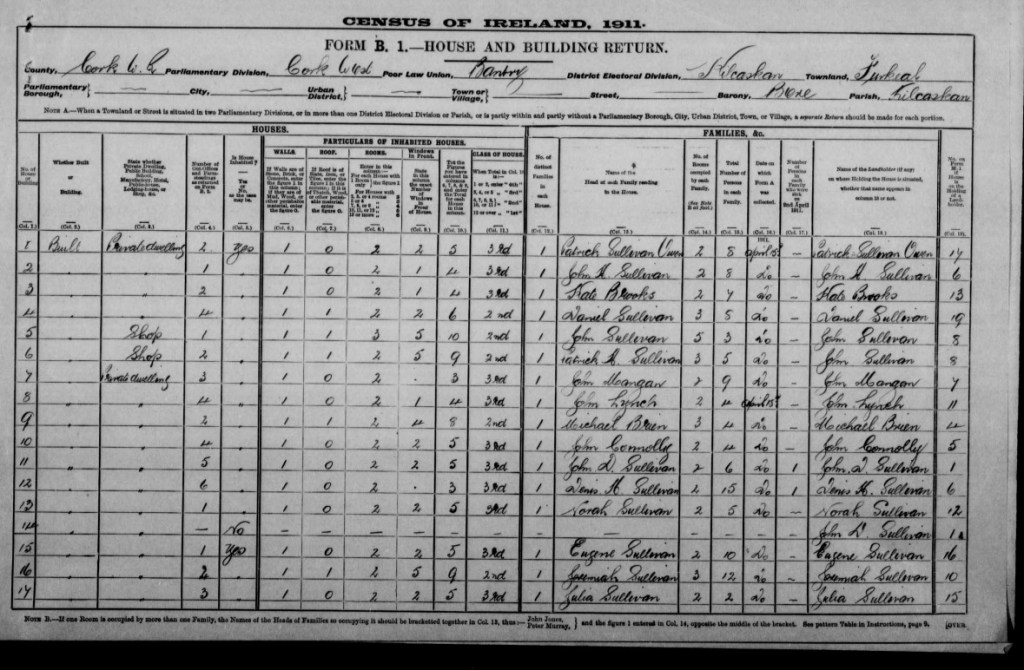 CENSUS OF IRELAND, 1911.
FORM B. 1.—HOUSE AND BUILDING RETURN.
County, Cork W. R. Parliamentary Division, Cork West Poor Law Union, Bantry District Electoral Division, Kilcaskan Townland,
Parliamentary Borough, — City, — Urban District, — Town or Village, — Street, — Barony, Bere Parish, Kilcaskan
NOTE A.—When a Townland or Street is situated in two Parliamentary Divisions, or in more than one District Electoral Division or Parish, or is partly within and partly without a Parliamentary Borough, City, Urban District, Town, or Village, a separate Return should be made for each portion.
HOUSES. FAMILIES, &c.
PARTICULARS OF INHABITED HOUSES.
WALLS. ROOF. ROOMS. Windows in Front. CLASS OF HOUSE.
No. of House or Building Whether Built or Building. State whether Private Dwelling, Public Building, School, Manufactory, Hotel, Public-house, Lodging-house, Shop, &c. Number of Out-Offices and Farm-steadings as returned on Form B. 2. Is House Inhabited? Yes or No, as the case may be. No. of distinct Families in each House. Name of the Head of each Family residing in the House. No. of Rooms occupied by each Family. Total Number of Persons in each Family. Date on which Form A was collected. Name of the Landholder (if any) on whose Holding the House is situated, whether that name appears in column 13 or not.
1 Built Private dwelling 2 Yes 1 0 2 2 5 3rd 1 Patrick Sullivan Owen 2 8 1911. April — Patrick Sullivan Owen 17
2 " " 1 " 1 0 2 1 4 3rd 1 John H. Sullivan 2 8 Do — John H. Sullivan 6
3 " " 2 " 1 0 2 1 4 3rd 1 Kate Brooks 2 7 Do — Kate Brooks 13
4 " " 4 " 1 1 2 2 6 2nd 1 Daniel Sullivan 3 8 Do — Daniel Sullivan 19
5 " Shop 1 " 1 1 3 5 10 2nd 1 John Sullivan 5 3 Do — John Sullivan 8
6 " Shop 2 " 1 1 2 5 9 2nd 1 Patrick H. Sullivan 3 5 Do — John Sullivan 8
7 " Private dwelling 3 " 1 0 2 . 3 3rd 1 John Mangan 2 9 Do — John Mangan 7
8 " " 4 " 1 0 2 1 4 3rd 1 John Lynch 2 4 April — John Lynch 11
9 " " 2 " 1 1 2 4 8 2nd 1 Michael Brien 3 4 Do — Michael Brien 4
10 " " 4 " 1 0 2 2 5 3rd 1 John Connolly 2 4 Do — John Connolly 5
11 " " 5 " 1 0 2 2 5 3rd 1 John D. Sullivan 2 6 Do 1 John D. Sullivan 1
12 " " 6 " 1 0 2 . 3 3rd 1 Denis H. Sullivan 2 15 Do 1 Denis H. Sullivan 6
13 " " 1 " 1 0 2 2 5 3rd 1 Norah Sullivan 2 5 Do — Norah Sullivan 12
14 " " — No — — — — — — — — — — — — John D. Sullivan
15 " " 1 Yes 1 0 2 2 5 3rd 1 Eugene Sullivan 2 10 Do — Eugene Sullivan 16
16 " " 2 " 1 1 2 5 9 2nd 1 Jeremiah Sullivan 3 12 Do — Jeremiah Sullivan 10
17 " " 3 " 1 0 2 2 5 3rd 1 Julia Sullivan 2 2 Do — Julia Sullivan 15
NOTE B.—If one Room is occupied by more than one Family, the Names of the Heads of Families so occupying it should be bracketted together in Col. 13, thus:— John Jones, Peter Murray, } and the figure 1 entered in Col. 14, opposite the middle of the bracket. See pattern Table in Instructions, page 9. [OVER.